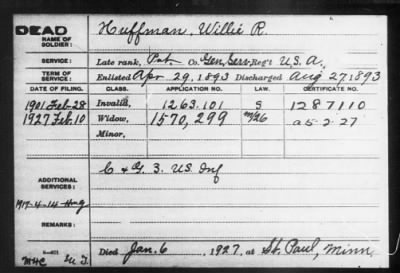 DEAD
NAME OF SOLDIER: Huffman, Willie R.
SERVICE: Late rank, Pvt. Co. Gen. Serv. Reg't U.S.A.
TERM OF SERVICE: Enlisted Apr 29, 1893 Discharged Aug 27, 1893
DATE OF FILING. CLASS. APPLICATION NO. LAW. CERTIFICATE NO.
1901 Feb-28 Invalid, 1263.101 S 1287110
1927 Feb. 10 Widow, 1570,299 a5-2-27
Minor,
ADDITIONAL SERVICES: C & G. 3. US Inf
1917-4-14
REMARKS:
Died Jan. 6, 1927, at St. Paul, Minn.